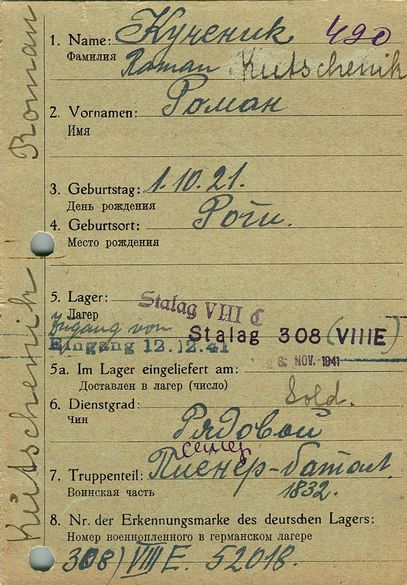 Kutschenik Roman
1. Name: Кученик 490
Фамилия Roman Kutschenik
2. Vornamen: Роман
Имя
3. Geburtstag: 1.10.21.
День рождения
4. Geburtsort: Роги.
Место рождения
5. Lager: Stalag VIII C
Лагер
Zugang von Stalag 308 (VIIIE)
Eingang 12.12.41 NOV. 1941
5a. Im Lager eingeliefert am:
Доставлен в лагер (число) Sold.
6. Dienstgrad: Рядовой
Чин
7. Truppenteil: Пионер-батал.
Воинская часть 1832.
8. Nr. der Erkennungsmarke des deutschen Lagers:
Номер военнопленного в германском лагере
308) VIII E. 52018.